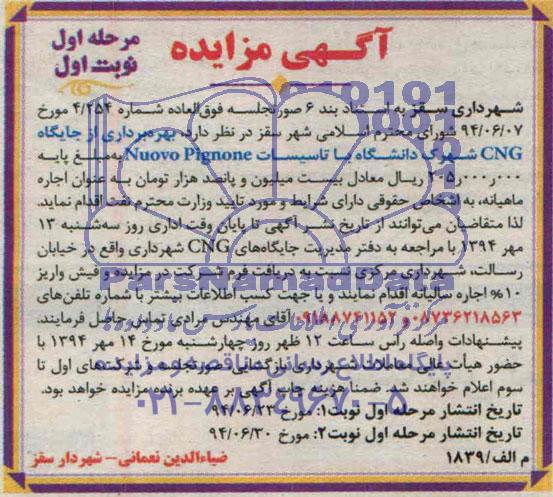 آگهی مزایده
مرحله اول
نوبت اول
شهرداری سقز به استناد بند ۶ صورتجلسه فوق‌العاده شماره ۴/۲۵۴ مورخ
۹۴/۰۶/۰۷ شورای محترم اسلامی شهر سقز در نظر دارد، بهره‌برداری از جایگاه
CNG شهرک دانشگاه با تاسیسات Nuovo Pignone به مبلغ پایه
۲۰۵٫۰۰۰٫۰۰۰ ریال معادل بیست میلیون و پانصد هزار تومان به عنوان اجاره
ماهیانه، به اشخاص حقوقی دارای شرایط و مورد تایید وزارت محترم نفت اقدام نماید.
لذا متقاضیان می‌توانند از تاریخ نشر آگهی تا پایان وقت اداری روز سه‌شنبه ۱۳
مهر ۱۳۹۴ با مراجعه به دفتر مدیریت جایگاه‌های CNG شهرداری واقع در خیابان
رسالت، شهرداری مرکزی نسبت به دریافت فرم شرکت در مزایده و فیش واریز
۱۰% اجاره سالیانه اقدام نمایند و یا جهت کسب اطلاعات بیشتر با شماره تلفن‌های
۰۸۷۳۶۲۱۸۵۶۳ و ۰۹۱۸۸۷۴۱۱۵۲ آقای مهندس مرادی تماس حاصل فرمایند.
پیشنهادات واصله راس ساعت ۱۲ ظهر روز چهارشنبه مورخ ۱۴ مهر ۱۳۹۴ با
حضور هیأت عالی معاملات شهرداری بازگشایی صورتجلسه و شرکت‌های اول تا
سوم اعلام خواهند شد. ضمنا هزینه چاپ آگهی بر عهده برنده مزایده خواهد بود.
تاریخ انتشار مرحله اول نوبت۱: مورخ ۹۴/۰۶/۲۳
تاریخ انتشار مرحله اول نوبت۲: مورخ ۹۴/۰۶/۳۰
م الف/۱۸۳۹
ضیاءالدین نعمانی- شهردار سقز
ParsNamadData
۰۲۱-۸۸۳۴۹۶۷۰-۵